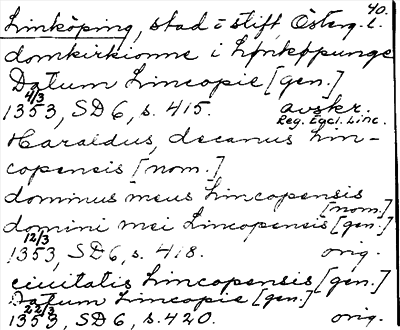 40.
Linköping, stad i stift, Österg. l.
domkirkionne i Lynkøpunge
Datum Lincopie [gen.]
4/3
1353, SD 6, s. 415. avskr.
Reg. Eccl. Linc.
Haraldus, decanus Lin-
copensis [nom.]
dominus meus Lincopensis
[nom.]
domini mei Lincopensis [gen.]
12/3
1353, SD 6, s. 418. orig.
ciuitatis Lincopensis [gen.]
Datum Lincopie [gen.]
22/3
1353, SD 6, s. 420. orig.